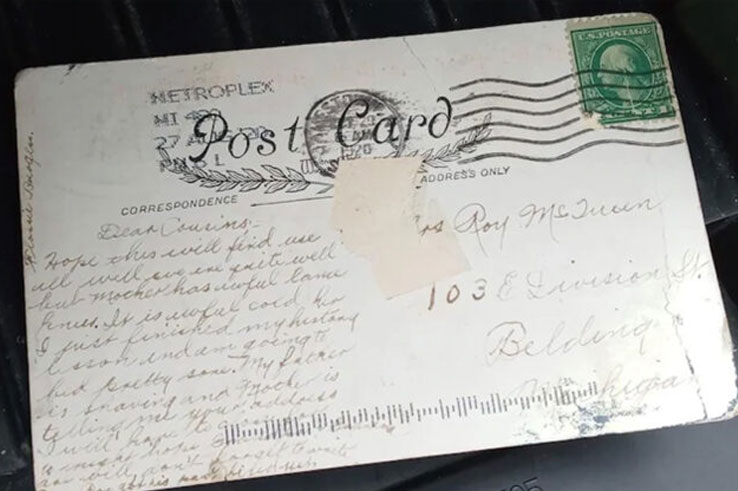 U.S.POSTAGE
METROPLEX
MI 480
27
Post Card
1920
CORRESPONDENCE
ADDRESS ONLY
Dear Cousins,-
Hope this will find use
all well we are quite well
but Mother has awful lame
knees. It is awful cold
I just finished my history
lesson and am going to
bed pretty soon. My father
is shaving and Mother is
telling me your address
I will have to
don't forget to write
Roy McQueen
103 E Division St.
Belding